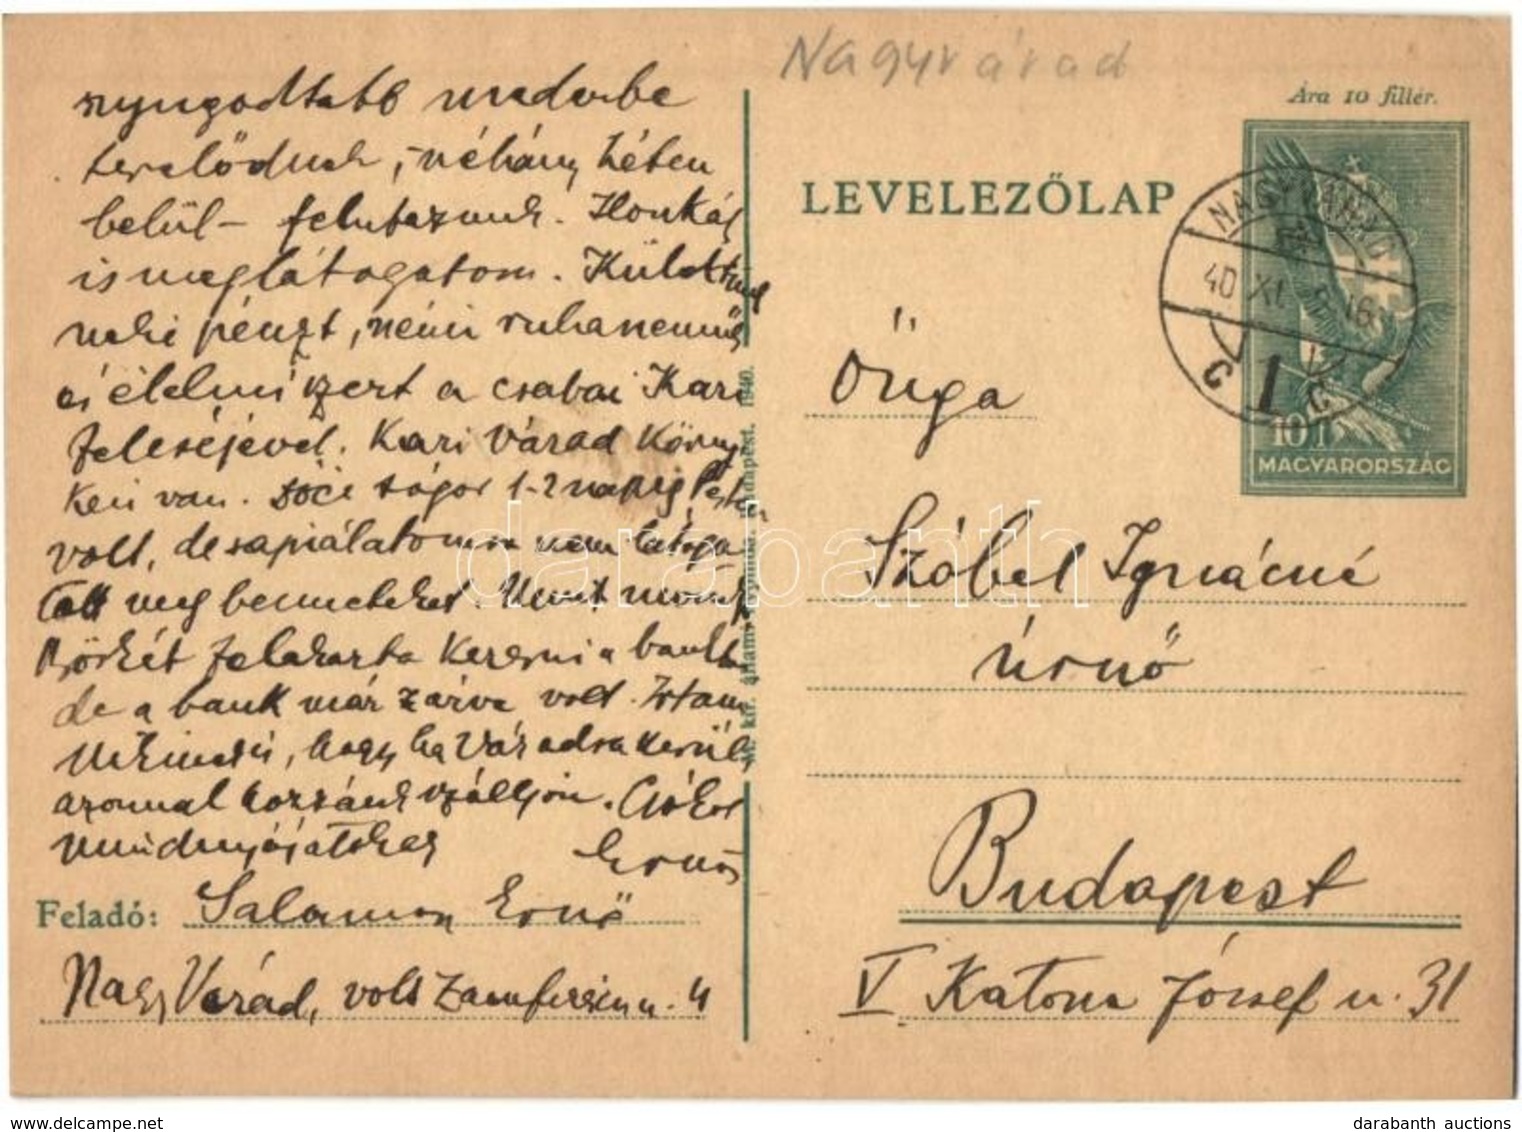 Nagyvárad
nyugodtabb mederbe
terelődnek, néhány héten
belül – felutazunk. Ilonkát
is meglátogatom. Küldtünk
neki pénzt, némi ruhaneműt
és élelmiszert a csabai Kari
feleségével. Kari Várad környé-
kén van. Böci sógor 1-2 napig Pesten
volt, de sajnálatomra nem látoga-
tott meg benneteket. Mint mondja
Bözskét fel akarta keresni a bankban
de a bank már zárva volt. Írtam
hogy ha Váradra kerül,
azonnal hozzánk szálljon. Csókol
mindnyájatokat Ernő
Feladó: Salamon Ernő
Nagy Várad, volt u. 4
M. kir. állami nyomda, Budapest. 1940.
Ára 10 fillér.
LEVELEZŐLAP
NAGYVÁRAD
40 XI. 16
C 1 C
10 f
MAGYARORSZÁG
Őnga
Szóbel Ignácné
úrnő
Budapest
V Katona József u. 31
darabanth
darabanth auctions